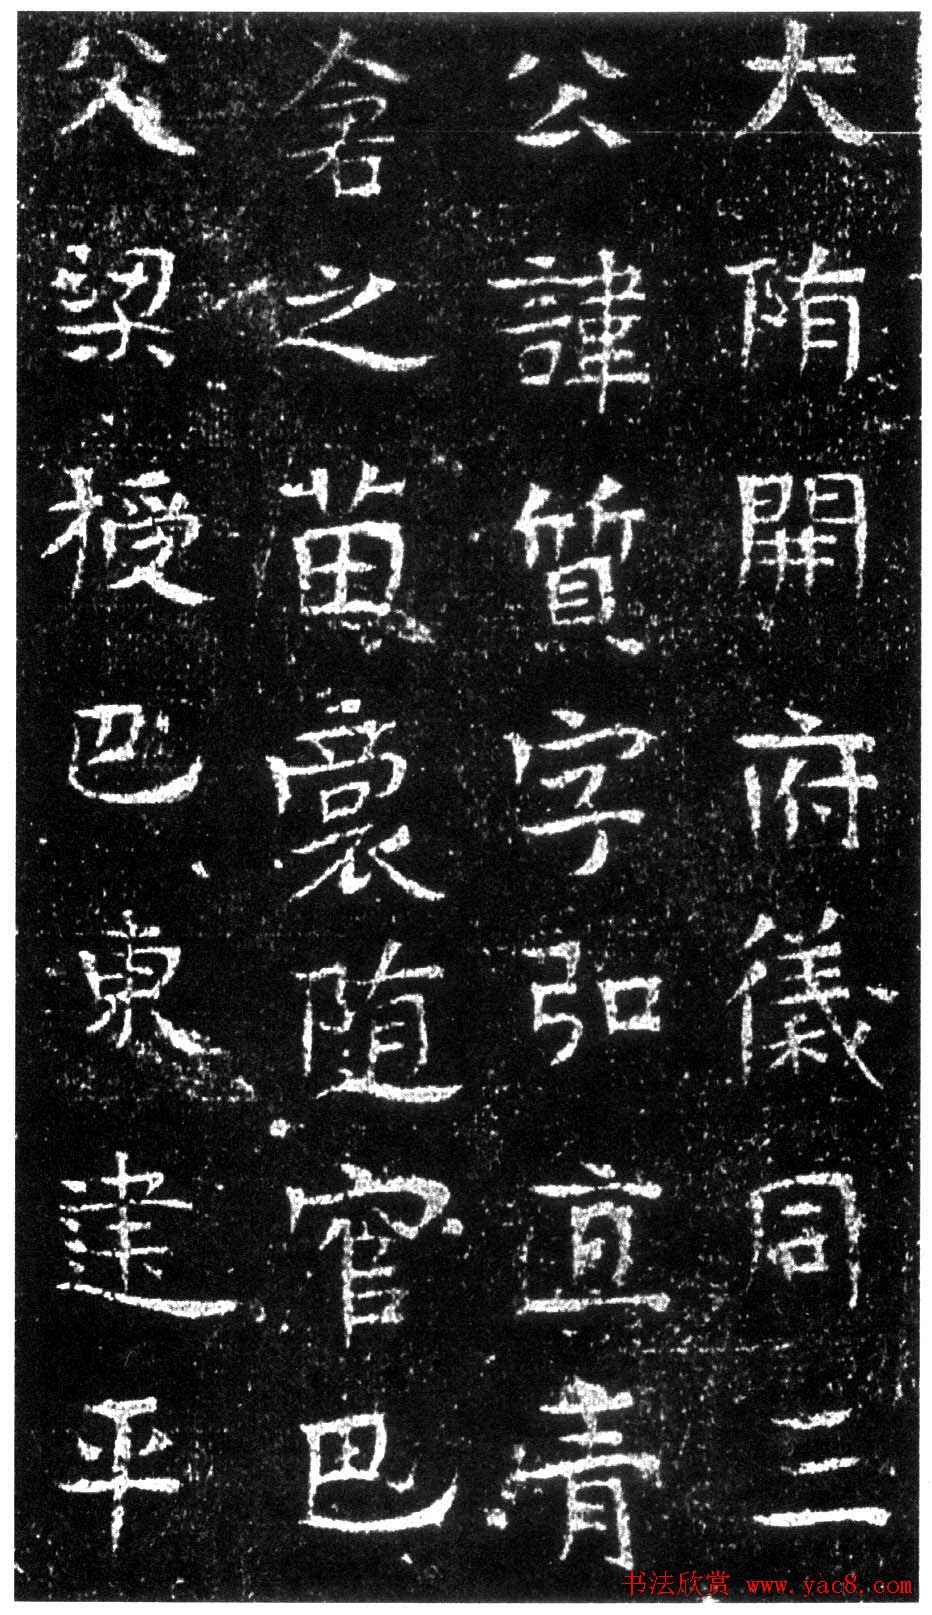 大隋開府儀同三
公諱質字弘直青
倉之苗裔随官巴
父梁授巴東建平
书法欣赏 www.yac8.com